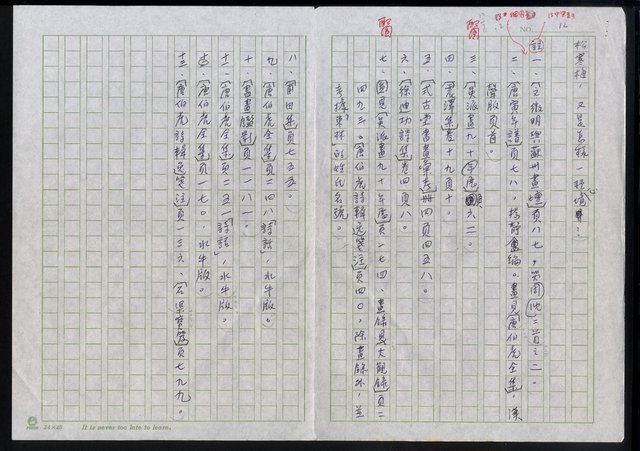 松寒梅，又是怎能一
註
一、「文徵明與蘇州畫壇」頁八七，
二、「唐寅年譜」頁七八，楊靜盦編。畫見「唐伯虎全集」，漢
聲版頁首。
三、「吳派畫九十年展」六二。
四、「震澤集」卷十九頁十。
五、「式古堂書畫彙考」冊四頁四五八。
六、「徐迪功詩集」卷四頁八。
七、圖見「吳派畫九十年展」頁一七四，畫錄見「大觀錄」頁二
四九三。「唐伯虎詩輯逸箋注」頁四〇，除畫錄外，並
考據「東林」的姓氏名號。
八、「莆田集」頁七五五。
九、「唐伯虎全集」頁二四八「詩話」，水牛版。
十、「書畫鑑影」頁一一八一。
十一、「唐伯虎全集」頁二五一「詩話」，水牛版。
十二、「唐伯虎全集」頁一七〇，水牛版。
十三、「唐伯虎詩輯逸箋注」頁一三六、「石渠寶笈」頁七九九。
NO.
12
24×25
It is never too late to learn.